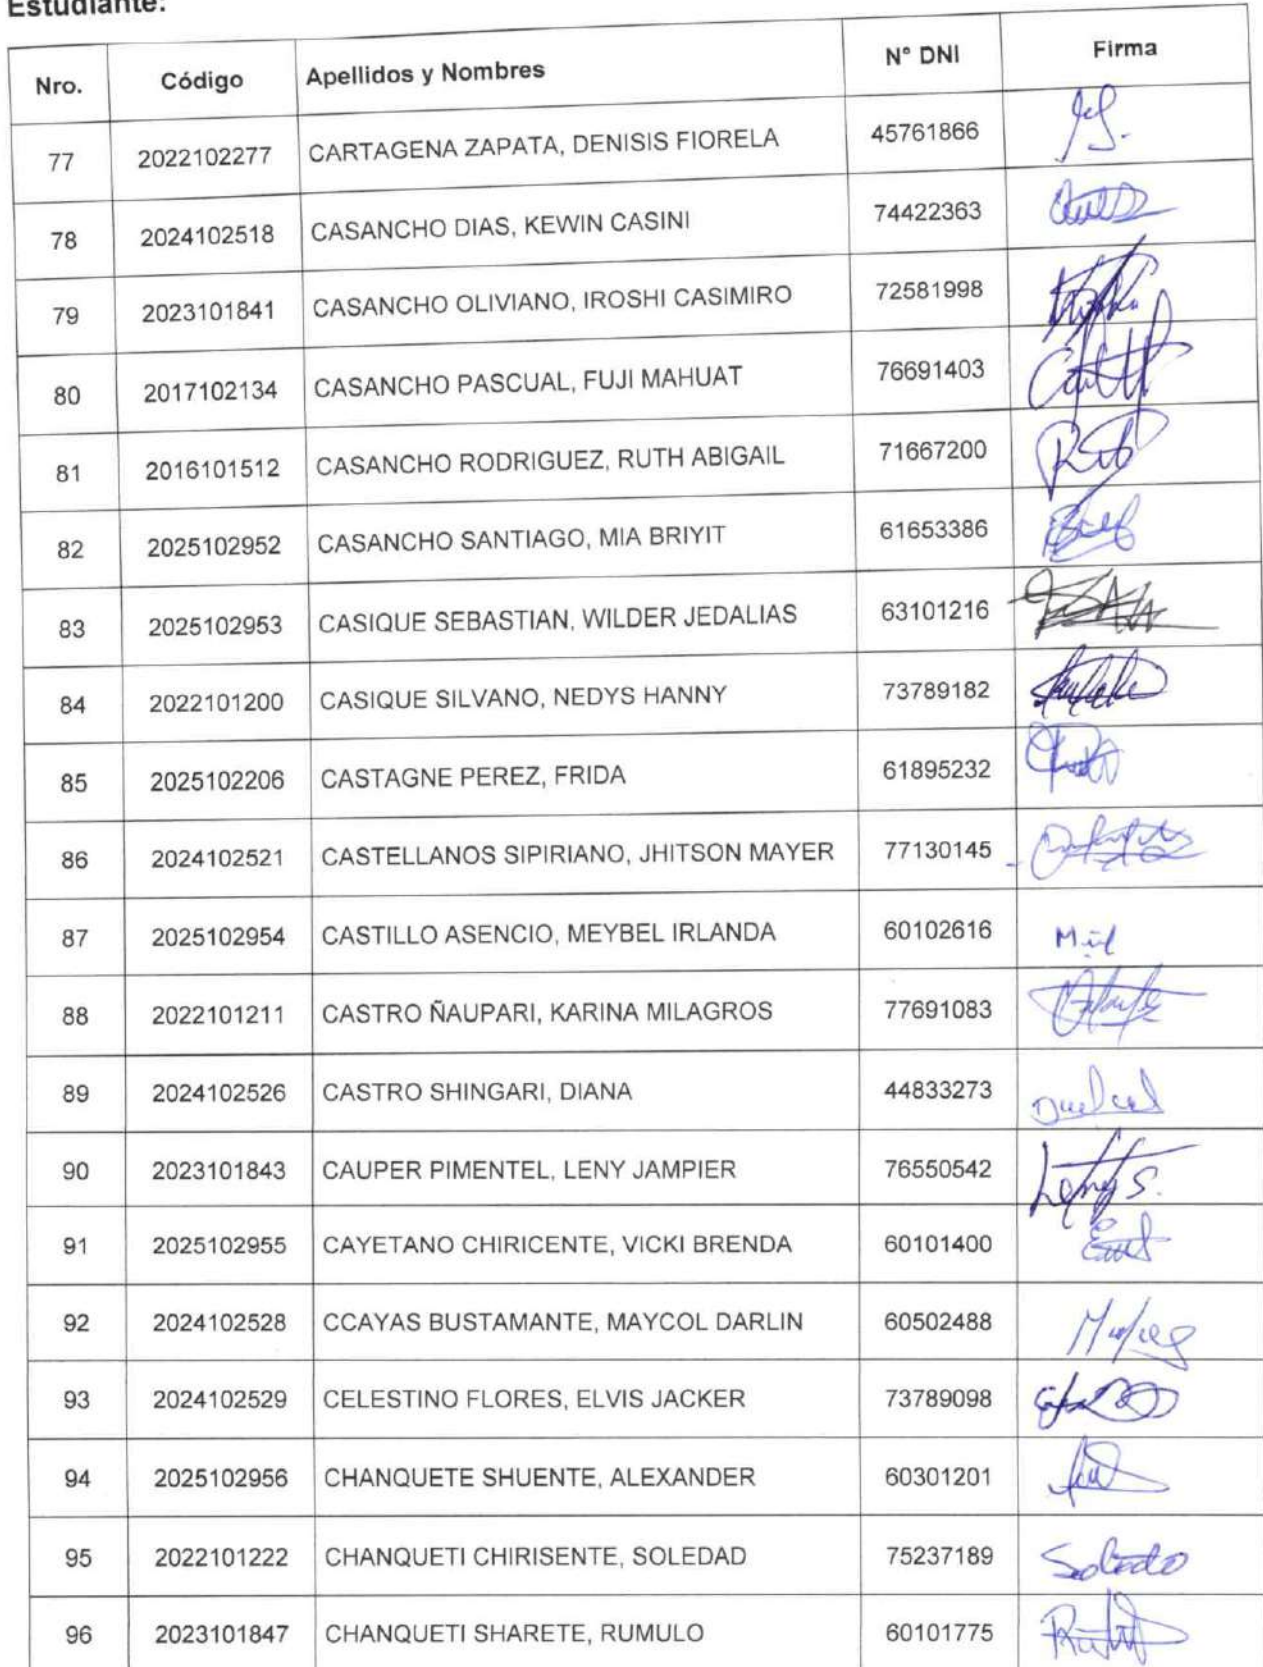 Estudiante:
Nro. Código Apellidos y Nombres N° DNI Firma
77 2022102277 CARTAGENA ZAPATA, DENISIS FIORELA 45761866
78 2024102518 CASANCHO DIAS, KEWIN CASINI 74422363
79 2023101841 CASANCHO OLIVIANO, IROSHI CASIMIRO 72581998
80 2017102134 CASANCHO PASCUAL, FUJI MAHUAT 76691403
81 2016101512 CASANCHO RODRIGUEZ, RUTH ABIGAIL 71667200
82 2025102952 CASANCHO SANTIAGO, MIA BRIYIT 61653386
83 2025102953 CASIQUE SEBASTIAN, WILDER JEDALIAS 63101216
84 2022101200 CASIQUE SILVANO, NEDYS HANNY 73789182
85 2025102206 CASTAGNE PEREZ, FRIDA 61895232
86 2024102521 CASTELLANOS SIPIRIANO, JHITSON MAYER 77130145
87 2025102954 CASTILLO ASENCIO, MEYBEL IRLANDA 60102616
88 2022101211 CASTRO ÑAUPARI, KARINA MILAGROS 77691083
89 2024102526 CASTRO SHINGARI, DIANA 44833273
90 2023101843 CAUPER PIMENTEL, LENY JAMPIER 76550542
91 2025102955 CAYETANO CHIRICENTE, VICKI BRENDA 60101400
92 2024102528 CCAYAS BUSTAMANTE, MAYCOL DARLIN 60502488
93 2024102529 CELESTINO FLORES, ELVIS JACKER 73789098
94 2025102956 CHANQUETE SHUENTE, ALEXANDER 60301201
95 2022101222 CHANQUETI CHIRISENTE, SOLEDAD 75237189
96 2023101847 CHANQUETI SHARETE, RUMULO 60101775